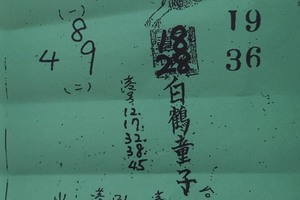 (一)
8
4 9
(二)
18
28
19
36
白鶴童子
12.
17.
32.
38.
45